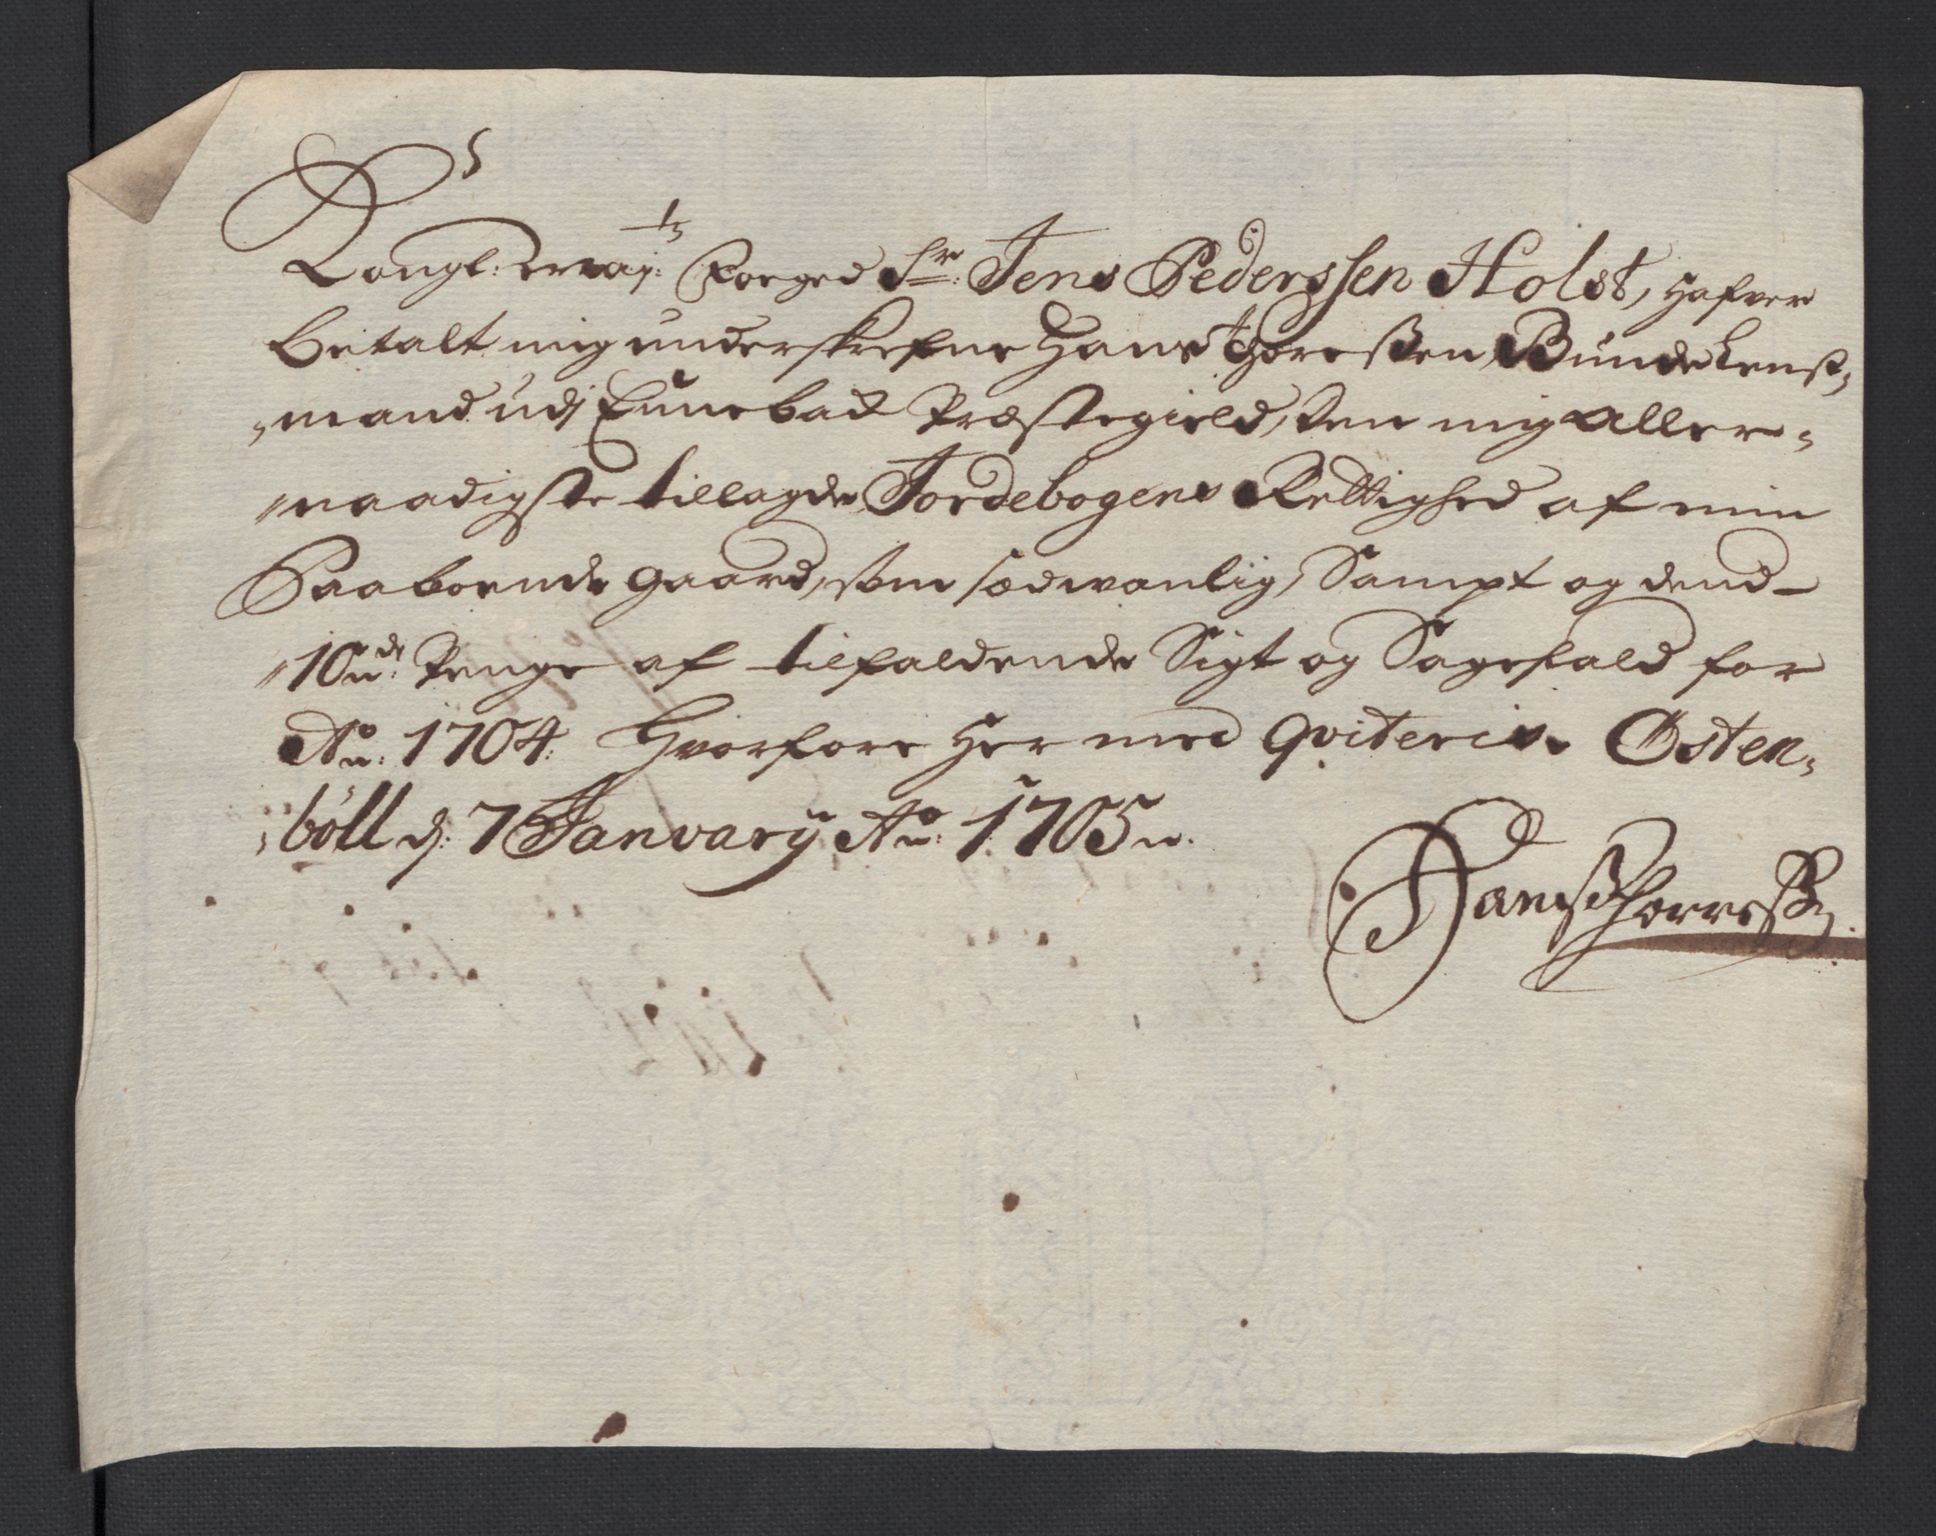 Kongl: May:ts Foeged Sr: Jens Pederssen Holst, hafver
betalt mig underskrefne Hans Thoressen, Bunde Lens-
mand udj Eunebad Præstegield, den mig Aller-
naadigste tillagde Jordebogens Rettighed af min
Paaboende gaard, som sædwanlig, Sampt og dend
10nde Penge af tilfaldende Sigt og Sagefald for
Ao: 1704. Hvorfore her med qviteris. Østen-
böll d: 7 Janvary Ao: 1705.
Hans Thorressen